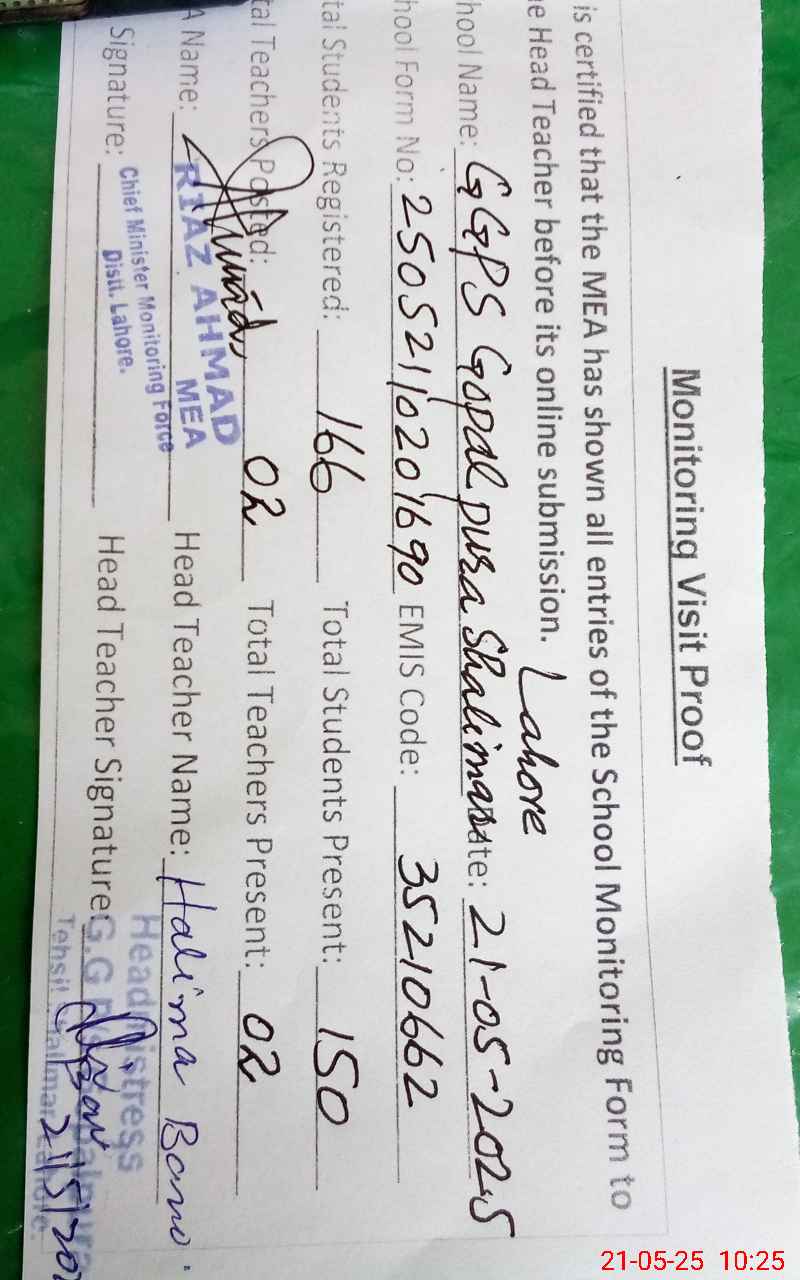 Monitoring Visit Proof
is certified that the MEA has shown all entries of the School Monitoring Form to
e Head Teacher before its online submission. Lahore
hool Name: GGPS Gopal pura Shalimar ate: 21-05-2025
hool Form No: 25052110201690 EMIS Code: 35210662
tal Students Registered: 166 Total Students Present: 150
tal Teachers Posted: 02 Total Teachers Present: 02
A Name: RIAZ AHMAD Head Teacher Name: Halima Bano
MEA
Signature: Chief Minister Monitoring Force Head Teacher Signature:
Distt. Lahore.
Headmistress
21/5/202
21-05-25 10:25